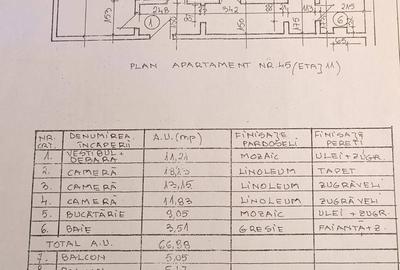 248
542
215
153
1
6
150
156
175
65
PLAN APARTAMENT NR. 45 (ETAJ 11)
NR. CRT. DENUMIREA ÎNCĂPERII A.U. (mp) FINISAJE PARDOSELI FINISAJE PEREȚI
1. VESTIBUL + DEBARA 11,21 MOZAIC ULEI + ZUGR.
2. CAMERĂ LINOLEUM TAPET
3. CAMERĂ 13,15 LINOLEUM ZUGRĂVELI
4. CAMERĂ 11,83 LINOLEUM ZUGRĂVELI
5. BUCĂTĂRIE 9,05 MOZAIC ULEI + ZUGR.
6. BAIE 3,51 GRESIE FAIANȚĂ + Z.
TOTAL A.U. 66,88
7. BALCON 5,05
BALCON